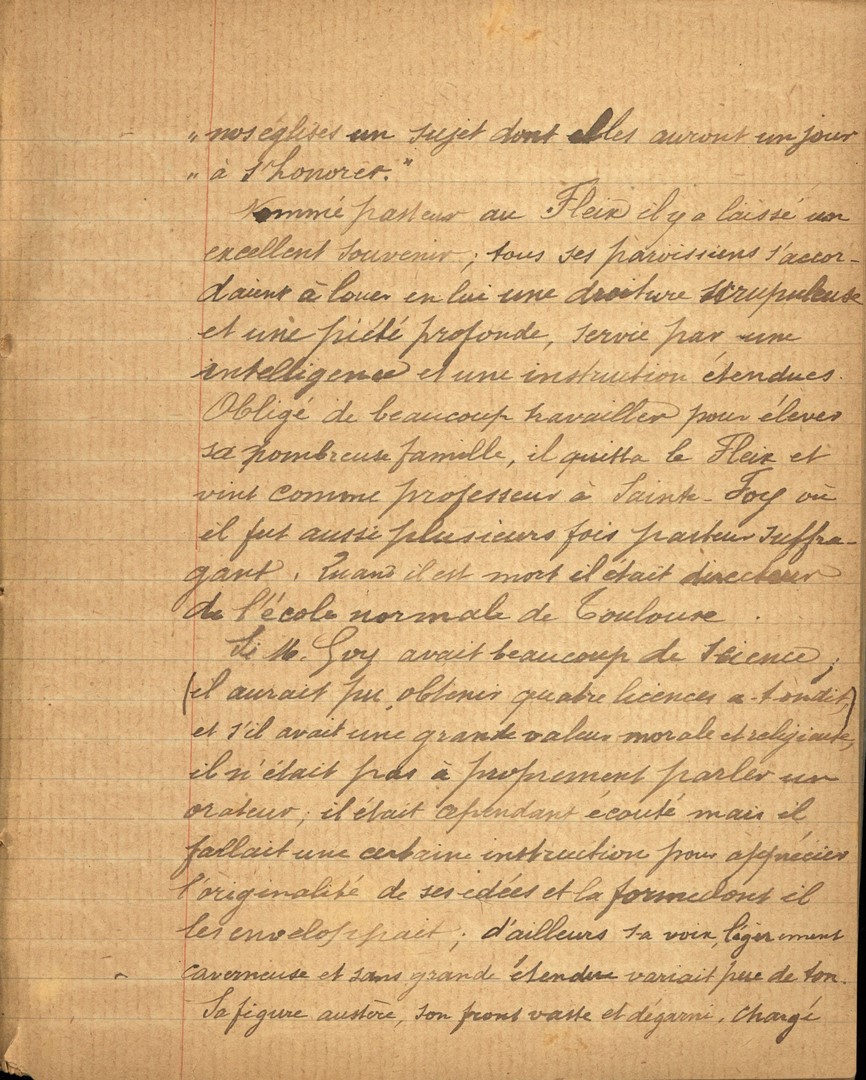 „ nos églises un sujet dont elles auront un jour
„ à s'honorer."
Nommé pasteur au Fleix il y a laissé un
excellent souvenir ; tous ses paroissiens s'accor-
daient à louer en lui une droiture scrupuleuse
et une piété profonde, servie par une
intelligence et une instruction étendues.
Obligé de beaucoup travailler pour élever
sa nombreuse famille, il quitta le Fleix et
vint comme professeur à Sainte-Foy où
il fut aussi plusieurs fois pasteur suffra-
gant. Quand il est mort il était directeur
de l'école normale de Toulouse.
Si M. Goy avait beaucoup de science,
(il aurait pu obtenir quatre licences a-t-on dit)
et s'il avait une grande valeur morale et religieuse,
il n'était pas à proprement parler un
orateur ; il était cependant écouté mais il
fallait une certaine instruction pour apprécier
l'originalité de ses idées et la forme dont il
les enveloppait ; d'ailleurs sa voix, légèrement
caverneuse et sans grande étendue variait peu de ton.
Sa figure austère, son front vaste et dégarni, chargé